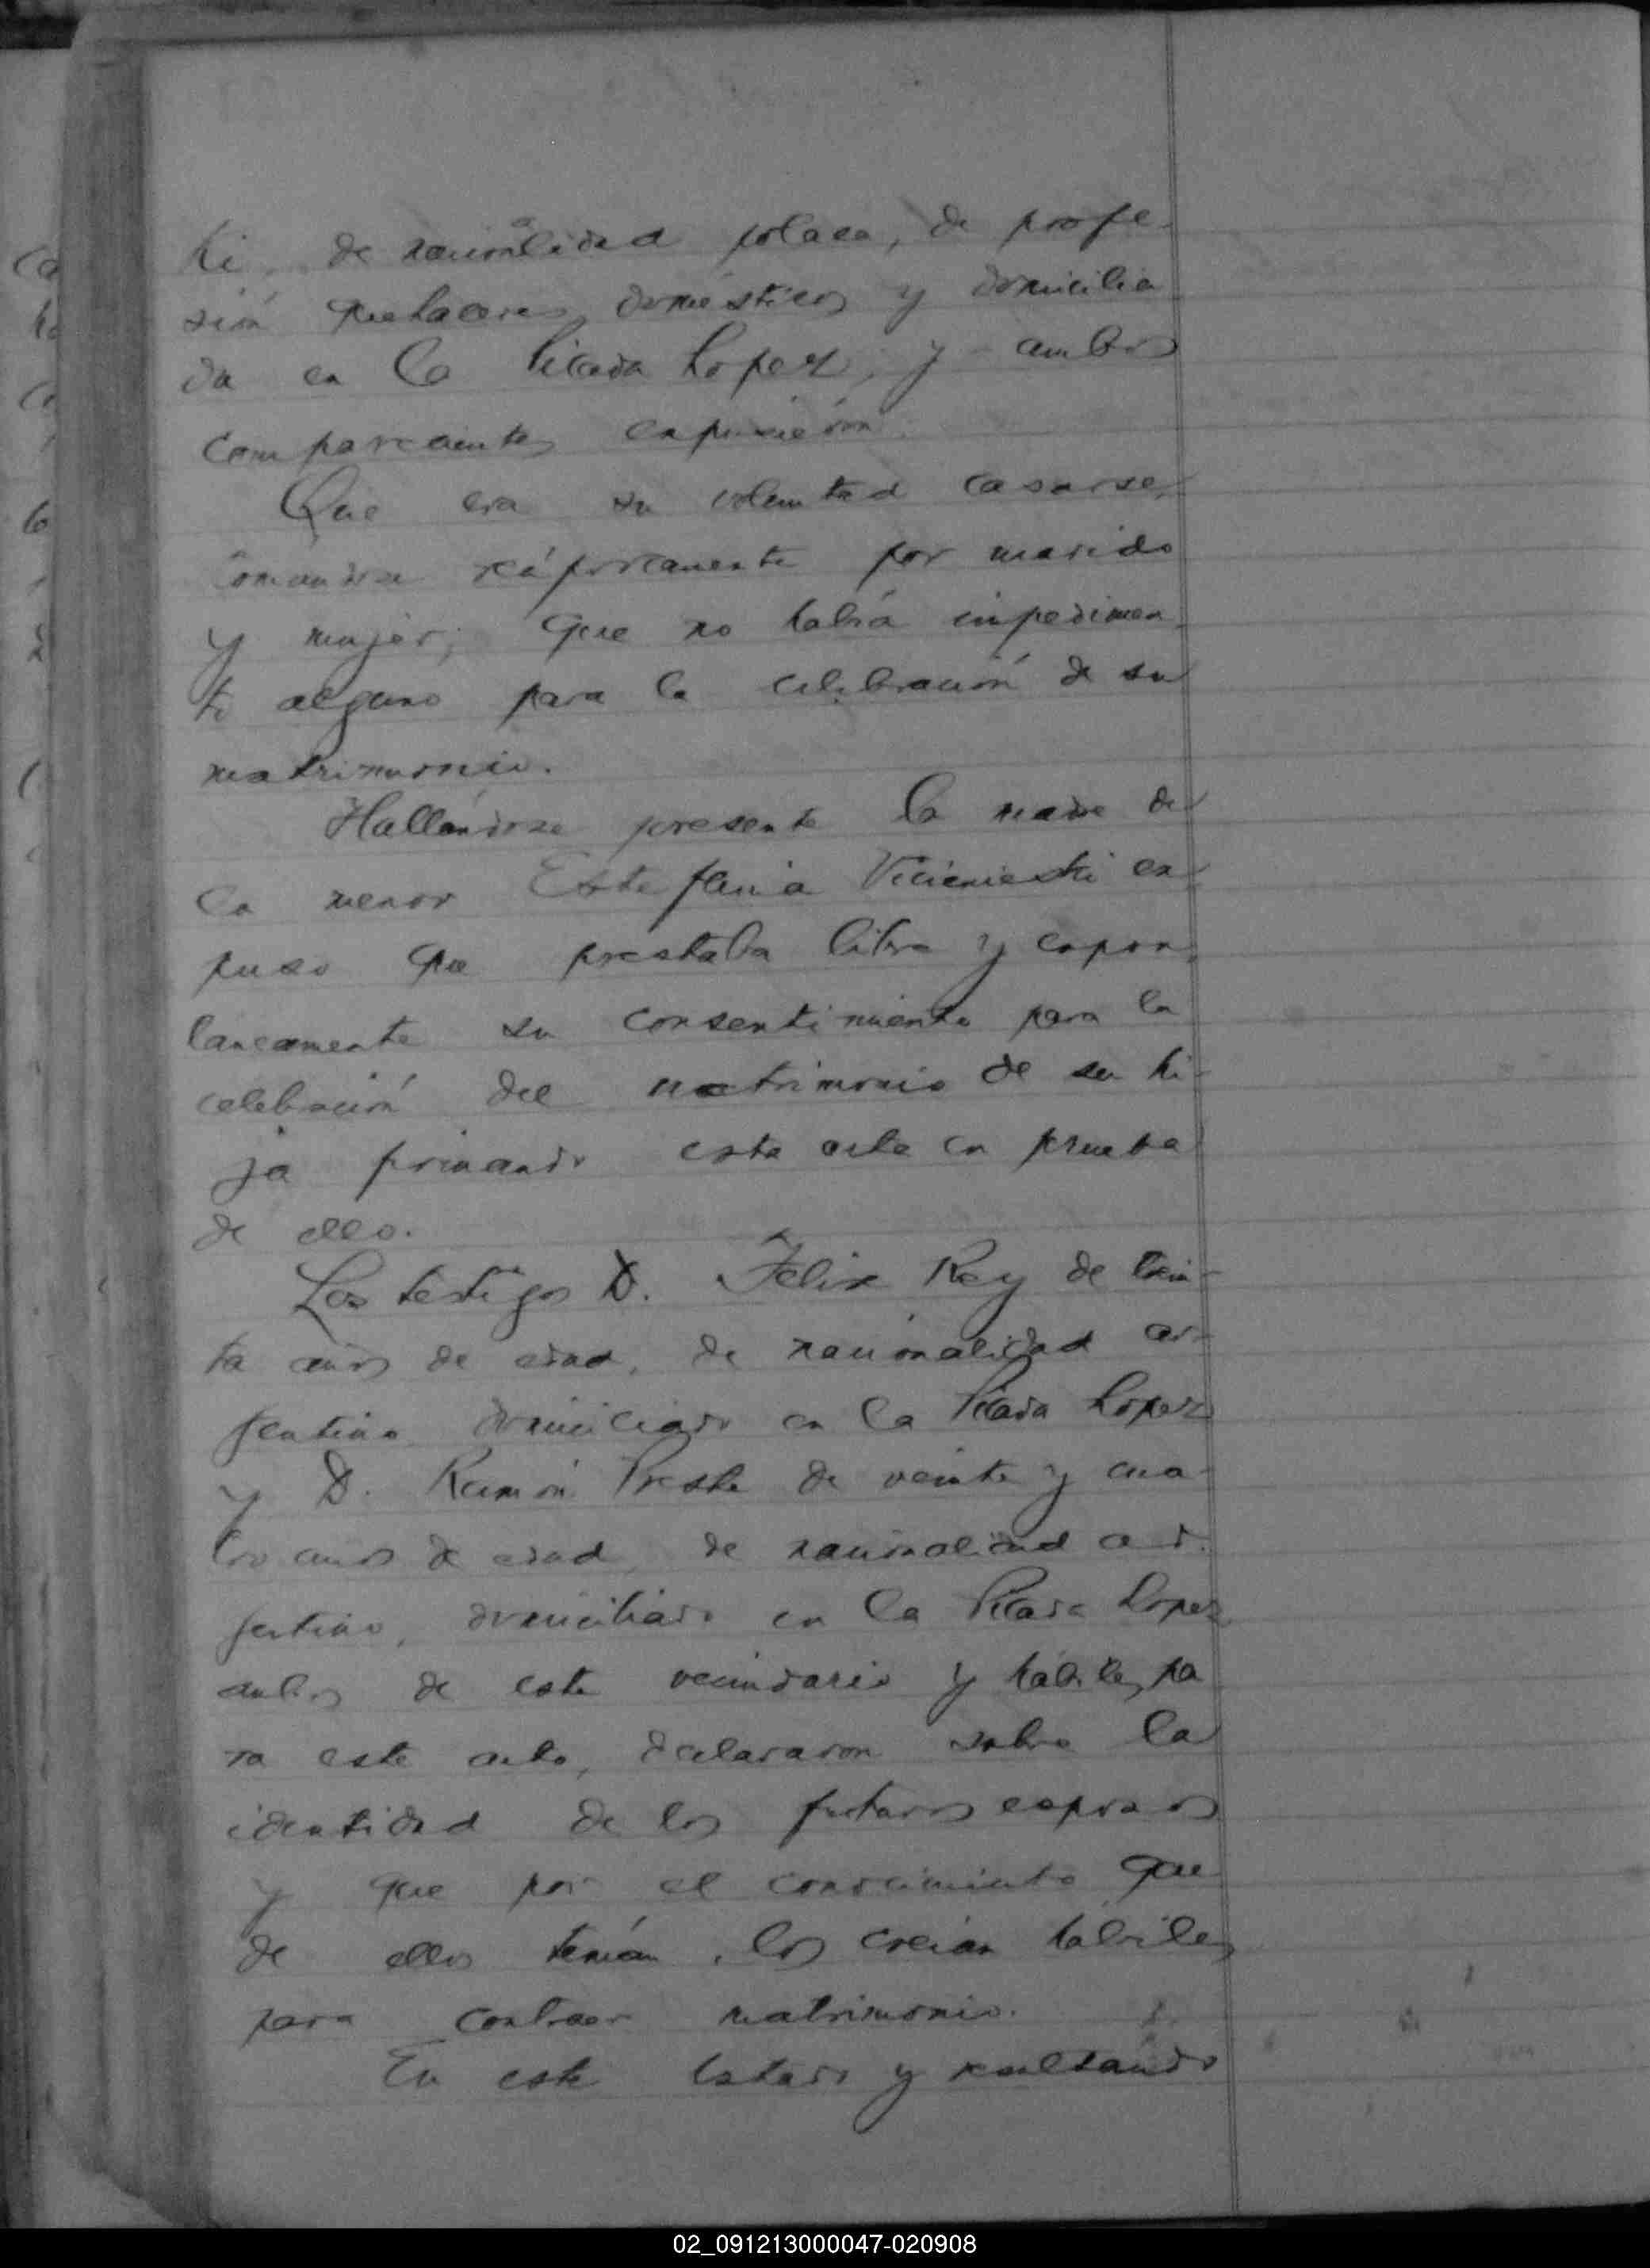 ki, de nacionalidad polaca, de profe-
sión quehaceres domésticos y domicilia
da en la Picada Lopez, y ambos
comparecientes expusieron:
Que era su voluntad casarse,
tomándose recíprocamente por marido
y mujer; que no había impedimen
to alguno para la celebración de su
matrimonio.
Hallándose presente la madre de
la menor Estefania ex
puso que prestaba libre y expon
táneamente su consentimiento para la
celebración del matrimonio de su hi-
ja firmando esta acta en prueba
de ello.
Los testigos D. Felix Rey de trein-
ta años de edad, de nacionalidad ar-
gentino domiciliado en la Picada Lopez
y D. Ramón de veinte y cua-
tro años de edad, de nacionalidad ar-
gentino, domiciliado en la Picada Lopez
ambos de este vecindario y hábiles pa
ra este acto, declararon sobre la
identidad de los futuros esposos
y que por el conocimiento que
de ellos tenían, los creían hábiles
para contraer matrimonio.
En este estado y resultando
02_091213000047-020908